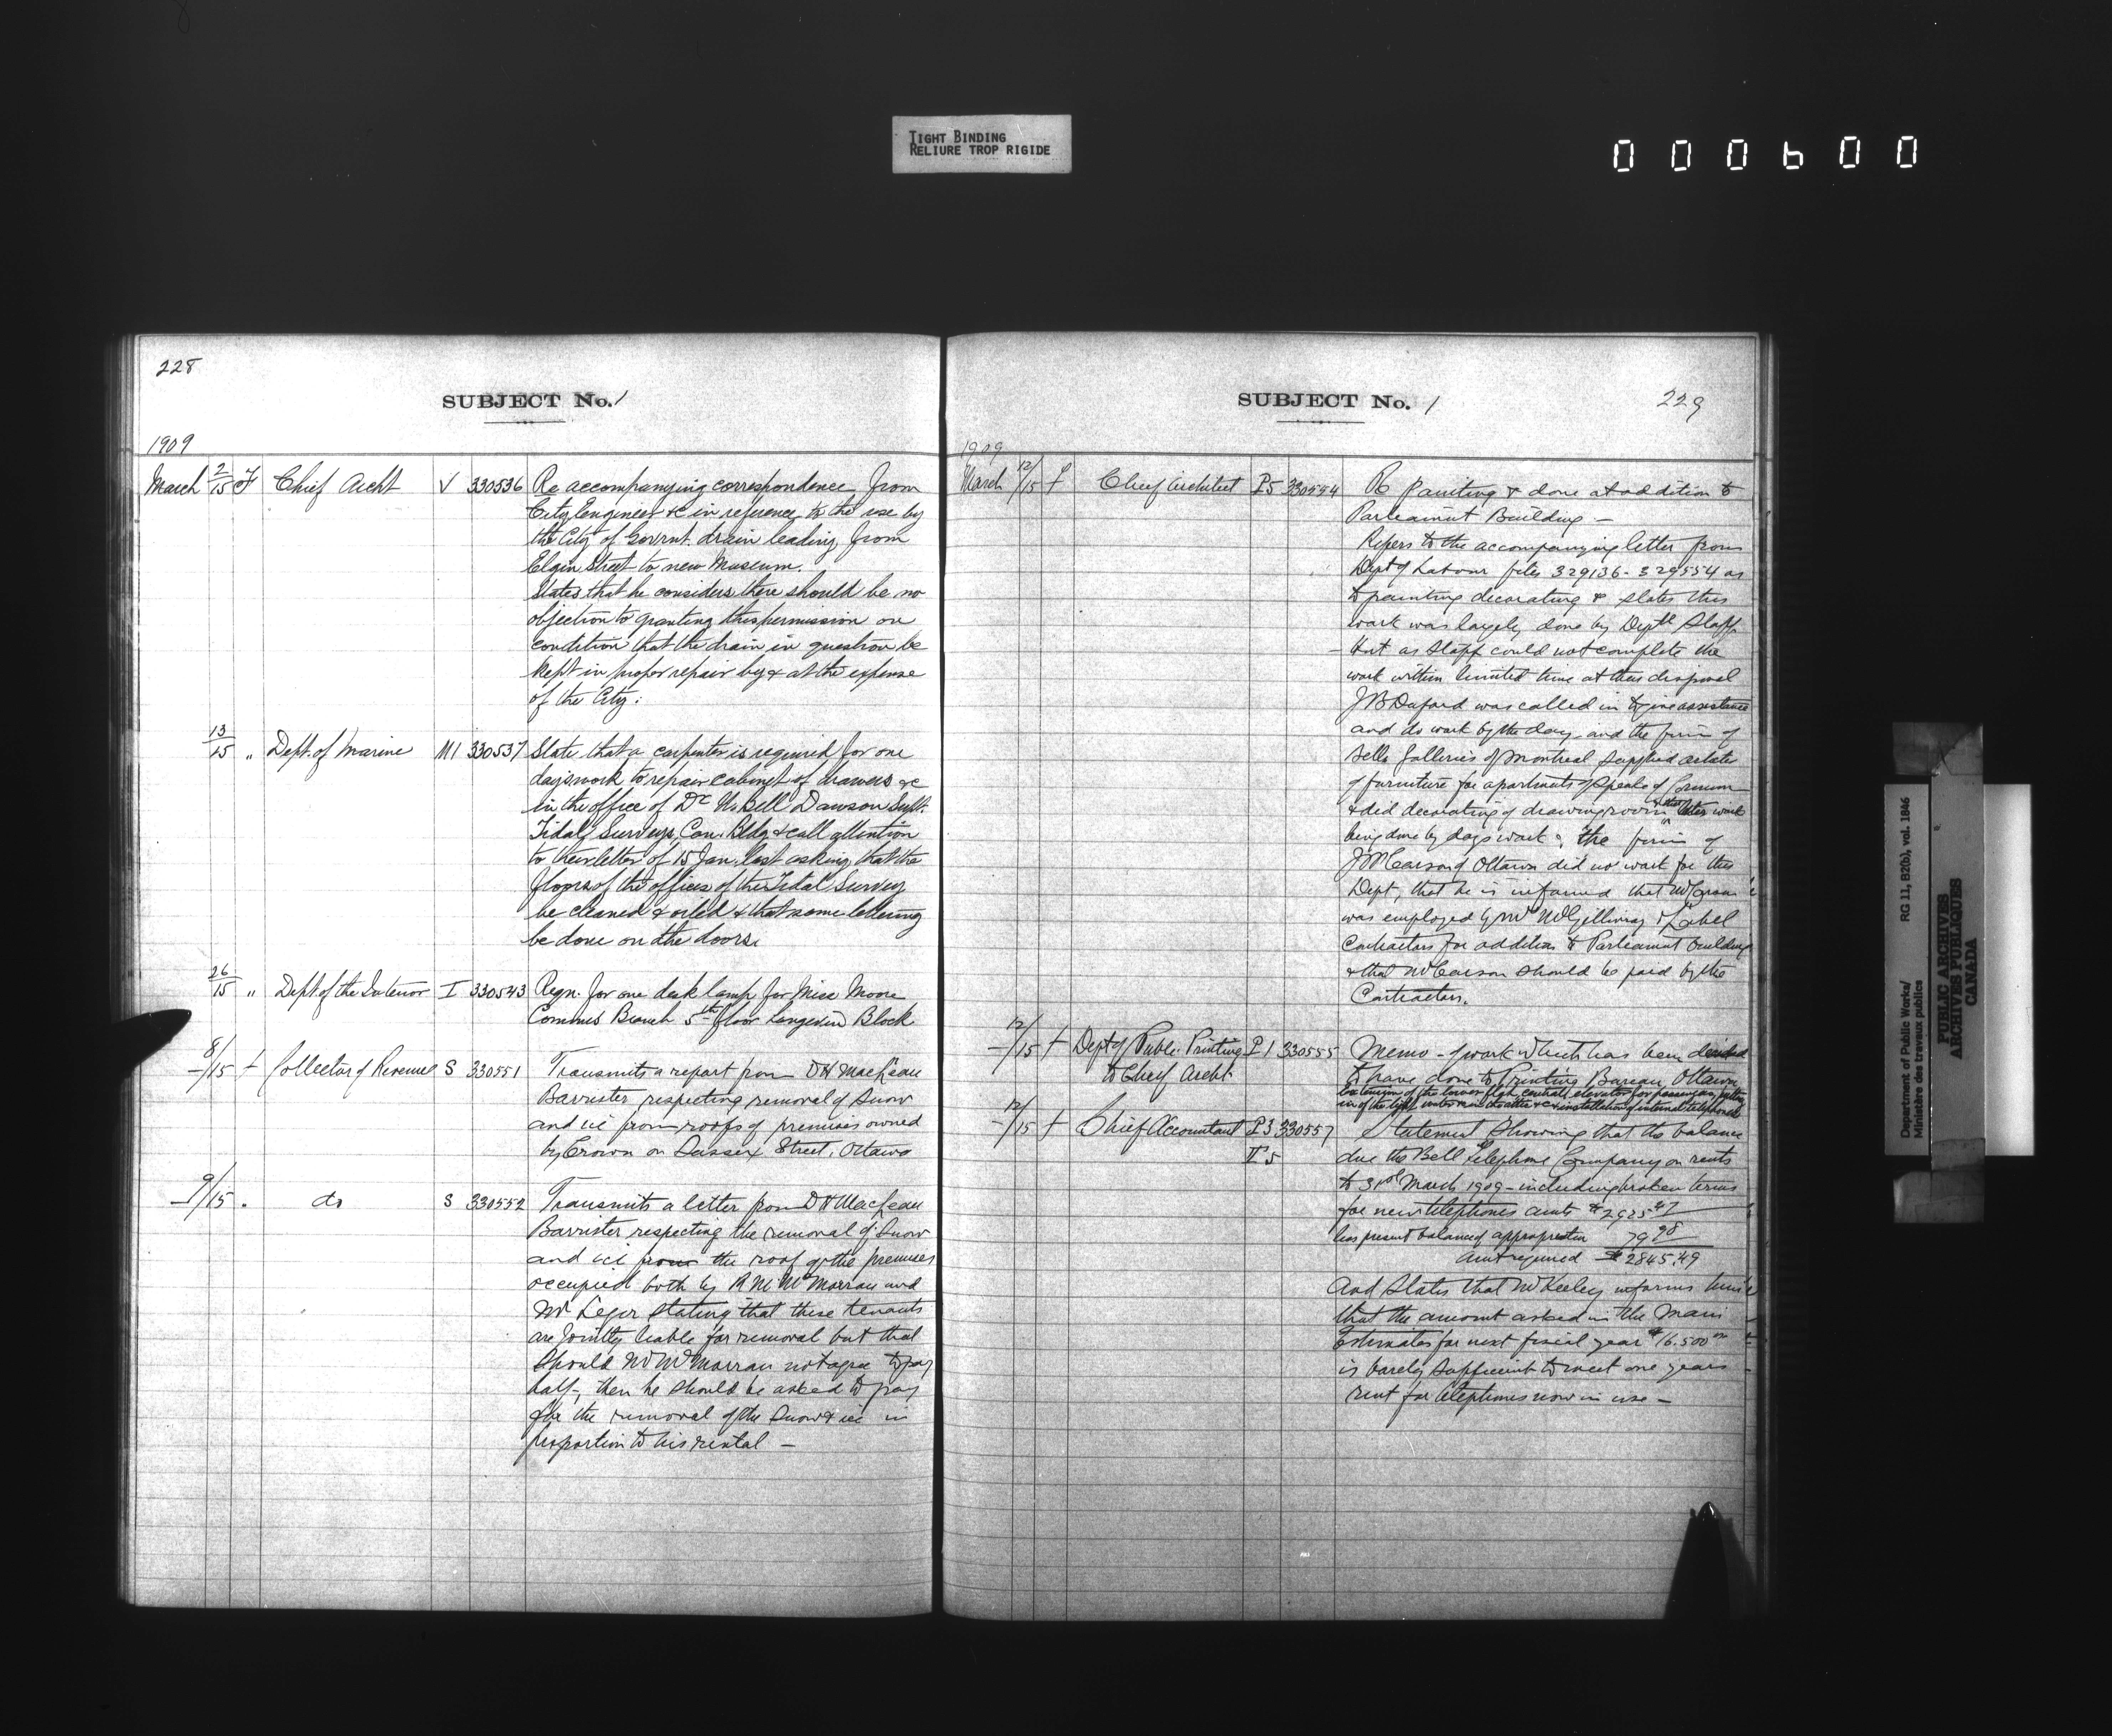 TIGHT BINDING
RELIURE TROP RIGIDE
000600
228
SUBJECT No. 1
1909
March 2/15 F Chief Archt V 330536 Re accompanying correspondence from
City Engineer &c in reference to the use by
the City of Govrnt. drain leading from
Elgin Street to new Museum.
States that he considers there should be no
objection to granting this permission on
condition that the drain in question be
kept in proper repair by & at the expense
of the City.
13/15 " Dept. of Marine M1 330537 State that a carpenter is required for one
day's work to repair cabinet of drawers &c
in the office of Dr W. Bell Dawson Supt.
Tidal Surveys, Can. Bldg & call attention
to their letter of 15 Jan. last asking that the
floors of the offices of the Tidal Survey
be cleaned & oiled & that some lettering
be done on the doors.
26/15 " Dept. of the Interior I 330543 Reqn. for one desk lamp for Miss Moore
Commrs Branch 5th floor Langevin Block
8/15 Collector of Revenue S 330551 Transmits a report from D H MacLean
Barrister respecting removal of Snow
and ice from roofs of premises owned
by Crown on Sussex Street, Ottawa
9/15 " do S 330552 Transmits a letter from D H MacLean
Barrister respecting the removal of Snow
and ice from the roof of the premises
occupied both by McMorran and
Mr Leger stating that these tenants
are jointly liable for removal but that
should Mr McMorran not agree to pay
half, then he should be asked to pay
for the removal of the Snow & ice in
proportion to his rental —
SUBJECT No. 1
229
1909
March 12/15 f Chief Architect P5 330554 Re painting & done at addition to
Parliament Building —
Refers to the accompanying letter from
Dept of Labour files 329136 - 329554 as
to painting decorating & states this
work was largely done by Deptl Staff
but as Staff could not complete the
work within limited time at their disposal
J B Duford was called in to give assistance
and do work by the day, and the firm of
Bells Galleries of Montreal supplied
of furniture for apartments of Speaker of Commons
& did decorating of drawing room & the other work
being done by days work, the firm of
J McCarson of Ottawa did no work for this
Dept, that he is informed that McCarson
was employed by Mr McGillivray & Labelle
Contractors for addition to Parliament building
& that McCarson should be paid by the
Contractors.
12/15 f Dept of Public Printing P1 330555 Memo - of work which has been decided
to Chief Archt. to have done to Printing Bureau, Ottawa
Extension of the tower, central elevator for passengers, putting
in of the light &c & installation of internal telephones
12/15 f Chief Accountant P3 330557 Statement showing that the balance
T5 due the Bell Telephone Company on rents
to 31st March 1909 - including broken terms
for new telephones amts $2925.47
less present balance of appropriation 79.98
Amt required $2845.49
And States that Mr Keeley informs him
that the amount asked in the Main
Estimates for next fiscal year $16.500
is barely sufficient to meet one years
rent for telephones now in use —
Department of Public Works/ RG 11, B2(b), vol. 1846
Ministère des travaux publics
PUBLIC ARCHIVES
ARCHIVES PUBLIQUES
CANADA